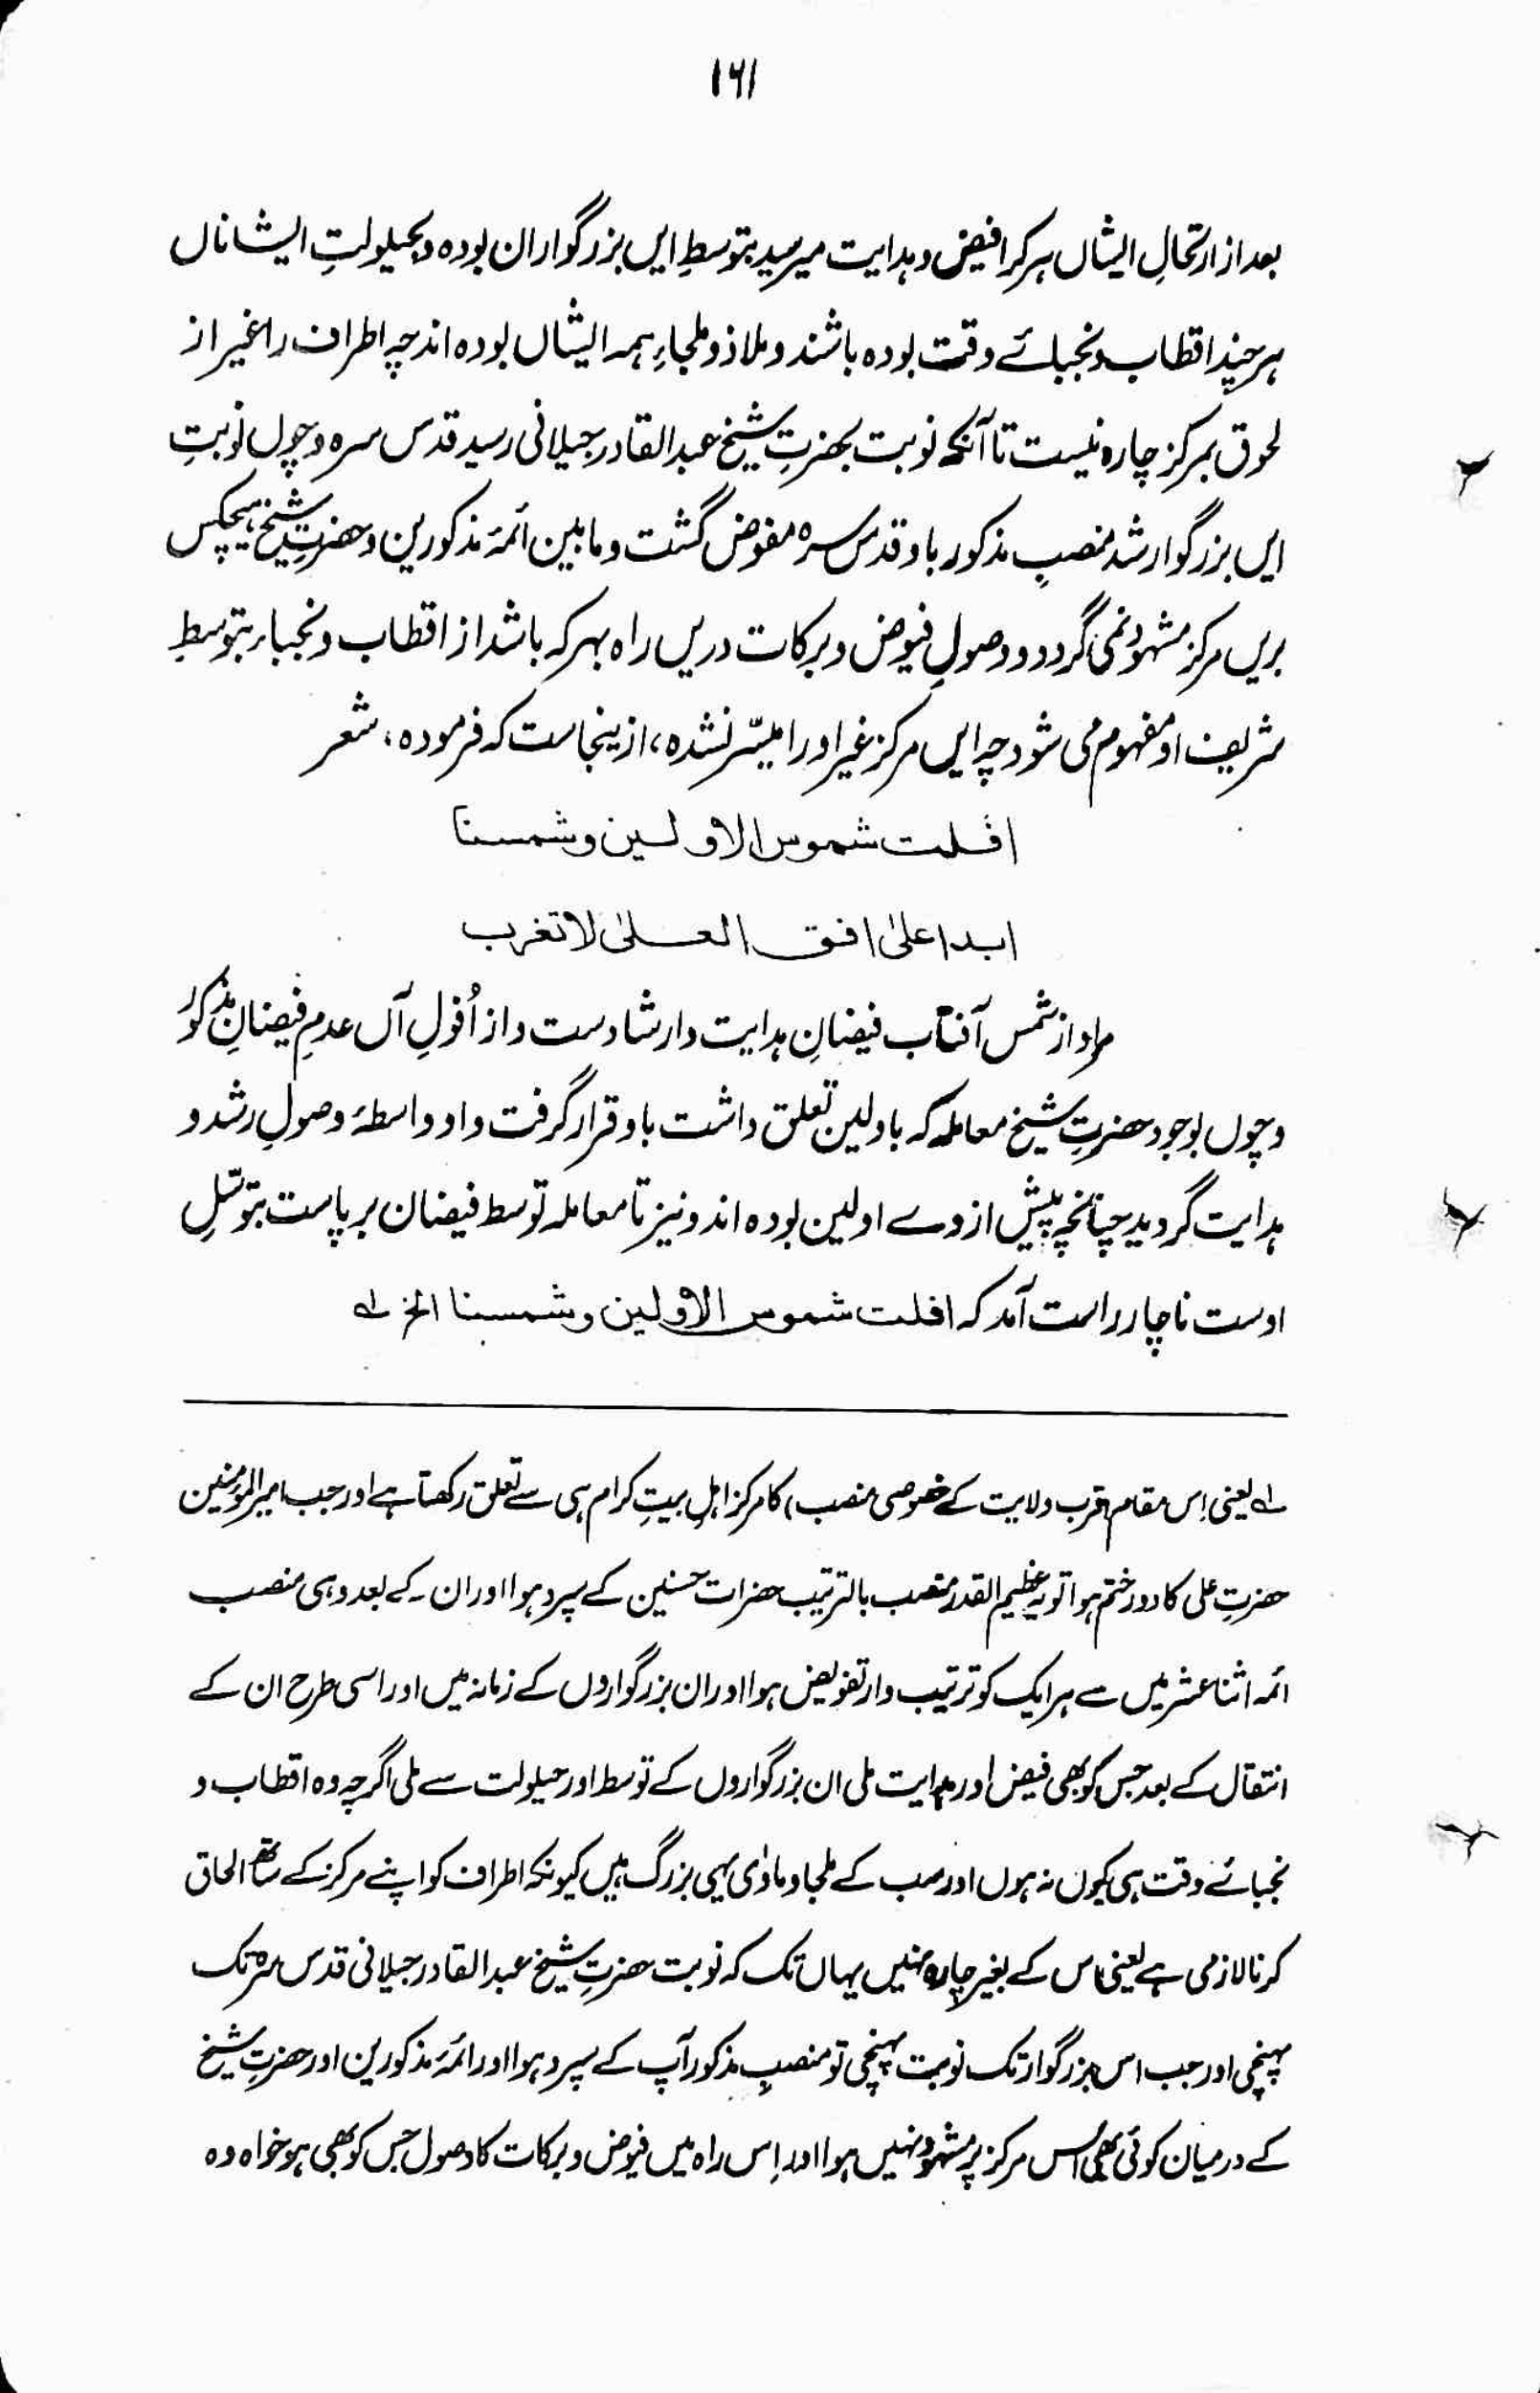 ۱۶۱
بعد از ارتحالِ ایشاں ہر کرا فیض و ہدایت میرسید بتوسطِ ایں بزرگواران بوده و بحیلولتِ ایشاناں
ہر چند اقطاب و نجبائے وقت بوده باشند و ملاذ و ملجاءِ ہمہ ایشاں بوده اند چہ اطراف را غیر از
لحوق بمرکز چاره نیست تا آنکہ نوبت بحضرتِ شیخ عبدالقادر جیلانی رسید قدس سره و چوں نوبتِ
ایں بزرگوار شد منصبِ مذکور باو قدس سره مفوض گشت و ما بین ائمۂ مذکورین و حضرتِ شیخ ہیچکس
بریں مرکز مشہود نمی گردد و وصولِ فیوض و برکات دریں راه بہر کہ باشد از اقطاب و نجباء بتوسطِ
شریف او مفہوم می شود چہ ایں مرکز غیر او را میسّر نشده، ازینجاست کہ فرموده، شعر
افلت شموس الاولین و شمسنا
ابدا علیٰ افق العلیٰ لا تغرب
مراد از شمس آفتاب فیضانِ ہدایت و ارشادست و از اُفولِ آں عدمِ فیضانِ مذکور
و چوں بوجود حضرتِ شیخ معاملہ کہ باولین تعلق داشت باو قرار گرفت و او واسطۂ وصولِ رشد و
ہدایت گردید چنانچہ پیش از وے اولین بوده اند و نیز تا معاملہ توسط فیضان برپاست بتوسّلِ
اوست ناچار راست آمد کہ افلت شموس الاولین و شمسنا الخ لے
لے یعنی اِس مقام (قرب ولایت کے خصوصی منصب) کا مرکز اہلِ بیتِ کرام ہی سے تعلق رکھتا ہے اور جب امیرالمؤمنین
حضرتِ علی کا دور ختم ہوا تو یہ عظیم القدر منصب بالترتیب حضرات حسنین کے سپرد ہوا اور ان کے بعد وہی منصب
ائمہ اثنا عشر میں سے ہر ایک کو ترتیب وار تفویض ہوا اور ان بزرگواروں کے زمانہ میں اور اسی طرح ان کے
انتقال کے بعد جس کو بھی فیض اور ہدایت ملی ان بزرگواروں کے توسط اور حیلولت سے ملی اگرچہ وہ اقطاب و
نجبائے وقت ہی کیوں نہ ہوں اور سب کے ملجا و ماوٰی یہی بزرگ ہیں کیونکہ اطراف کو اپنے مرکز کے ساتھ الحاق
کرنا لازمی ہے یعنی اس کے بغیر چارہ نہیں یہاں تک کہ نوبت حضرتِ شیخ عبدالقادر جیلانی قدس سرہ تک
پہنچی اور جب اس بزرگوار تک نوبت پہنچی تو منصبِ مذکور آپ کے سپرد ہوا اور ائمۂ مذکورین اور حضرتِ شیخ
کے درمیان کوئی بھی اُس مرکز پر مشہود نہیں ہوا اور اِس راہ میں فیوض و برکات کا وصول جس کو بھی ہو خواہ وہ